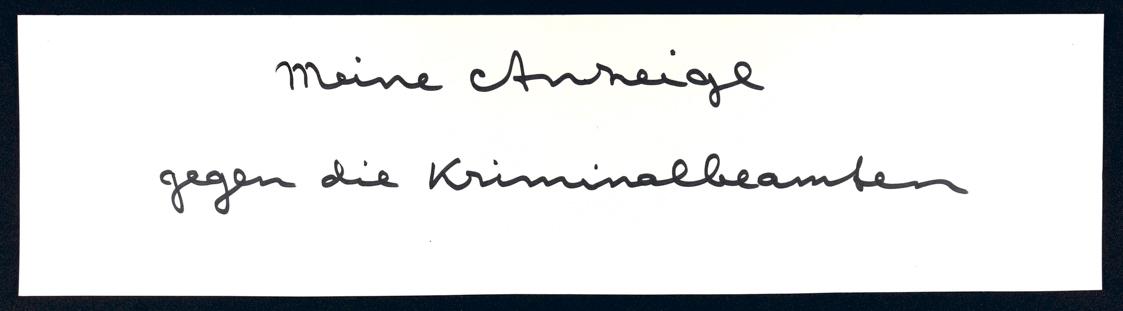 Meine Anzeige
gegen die Kriminalbeamten